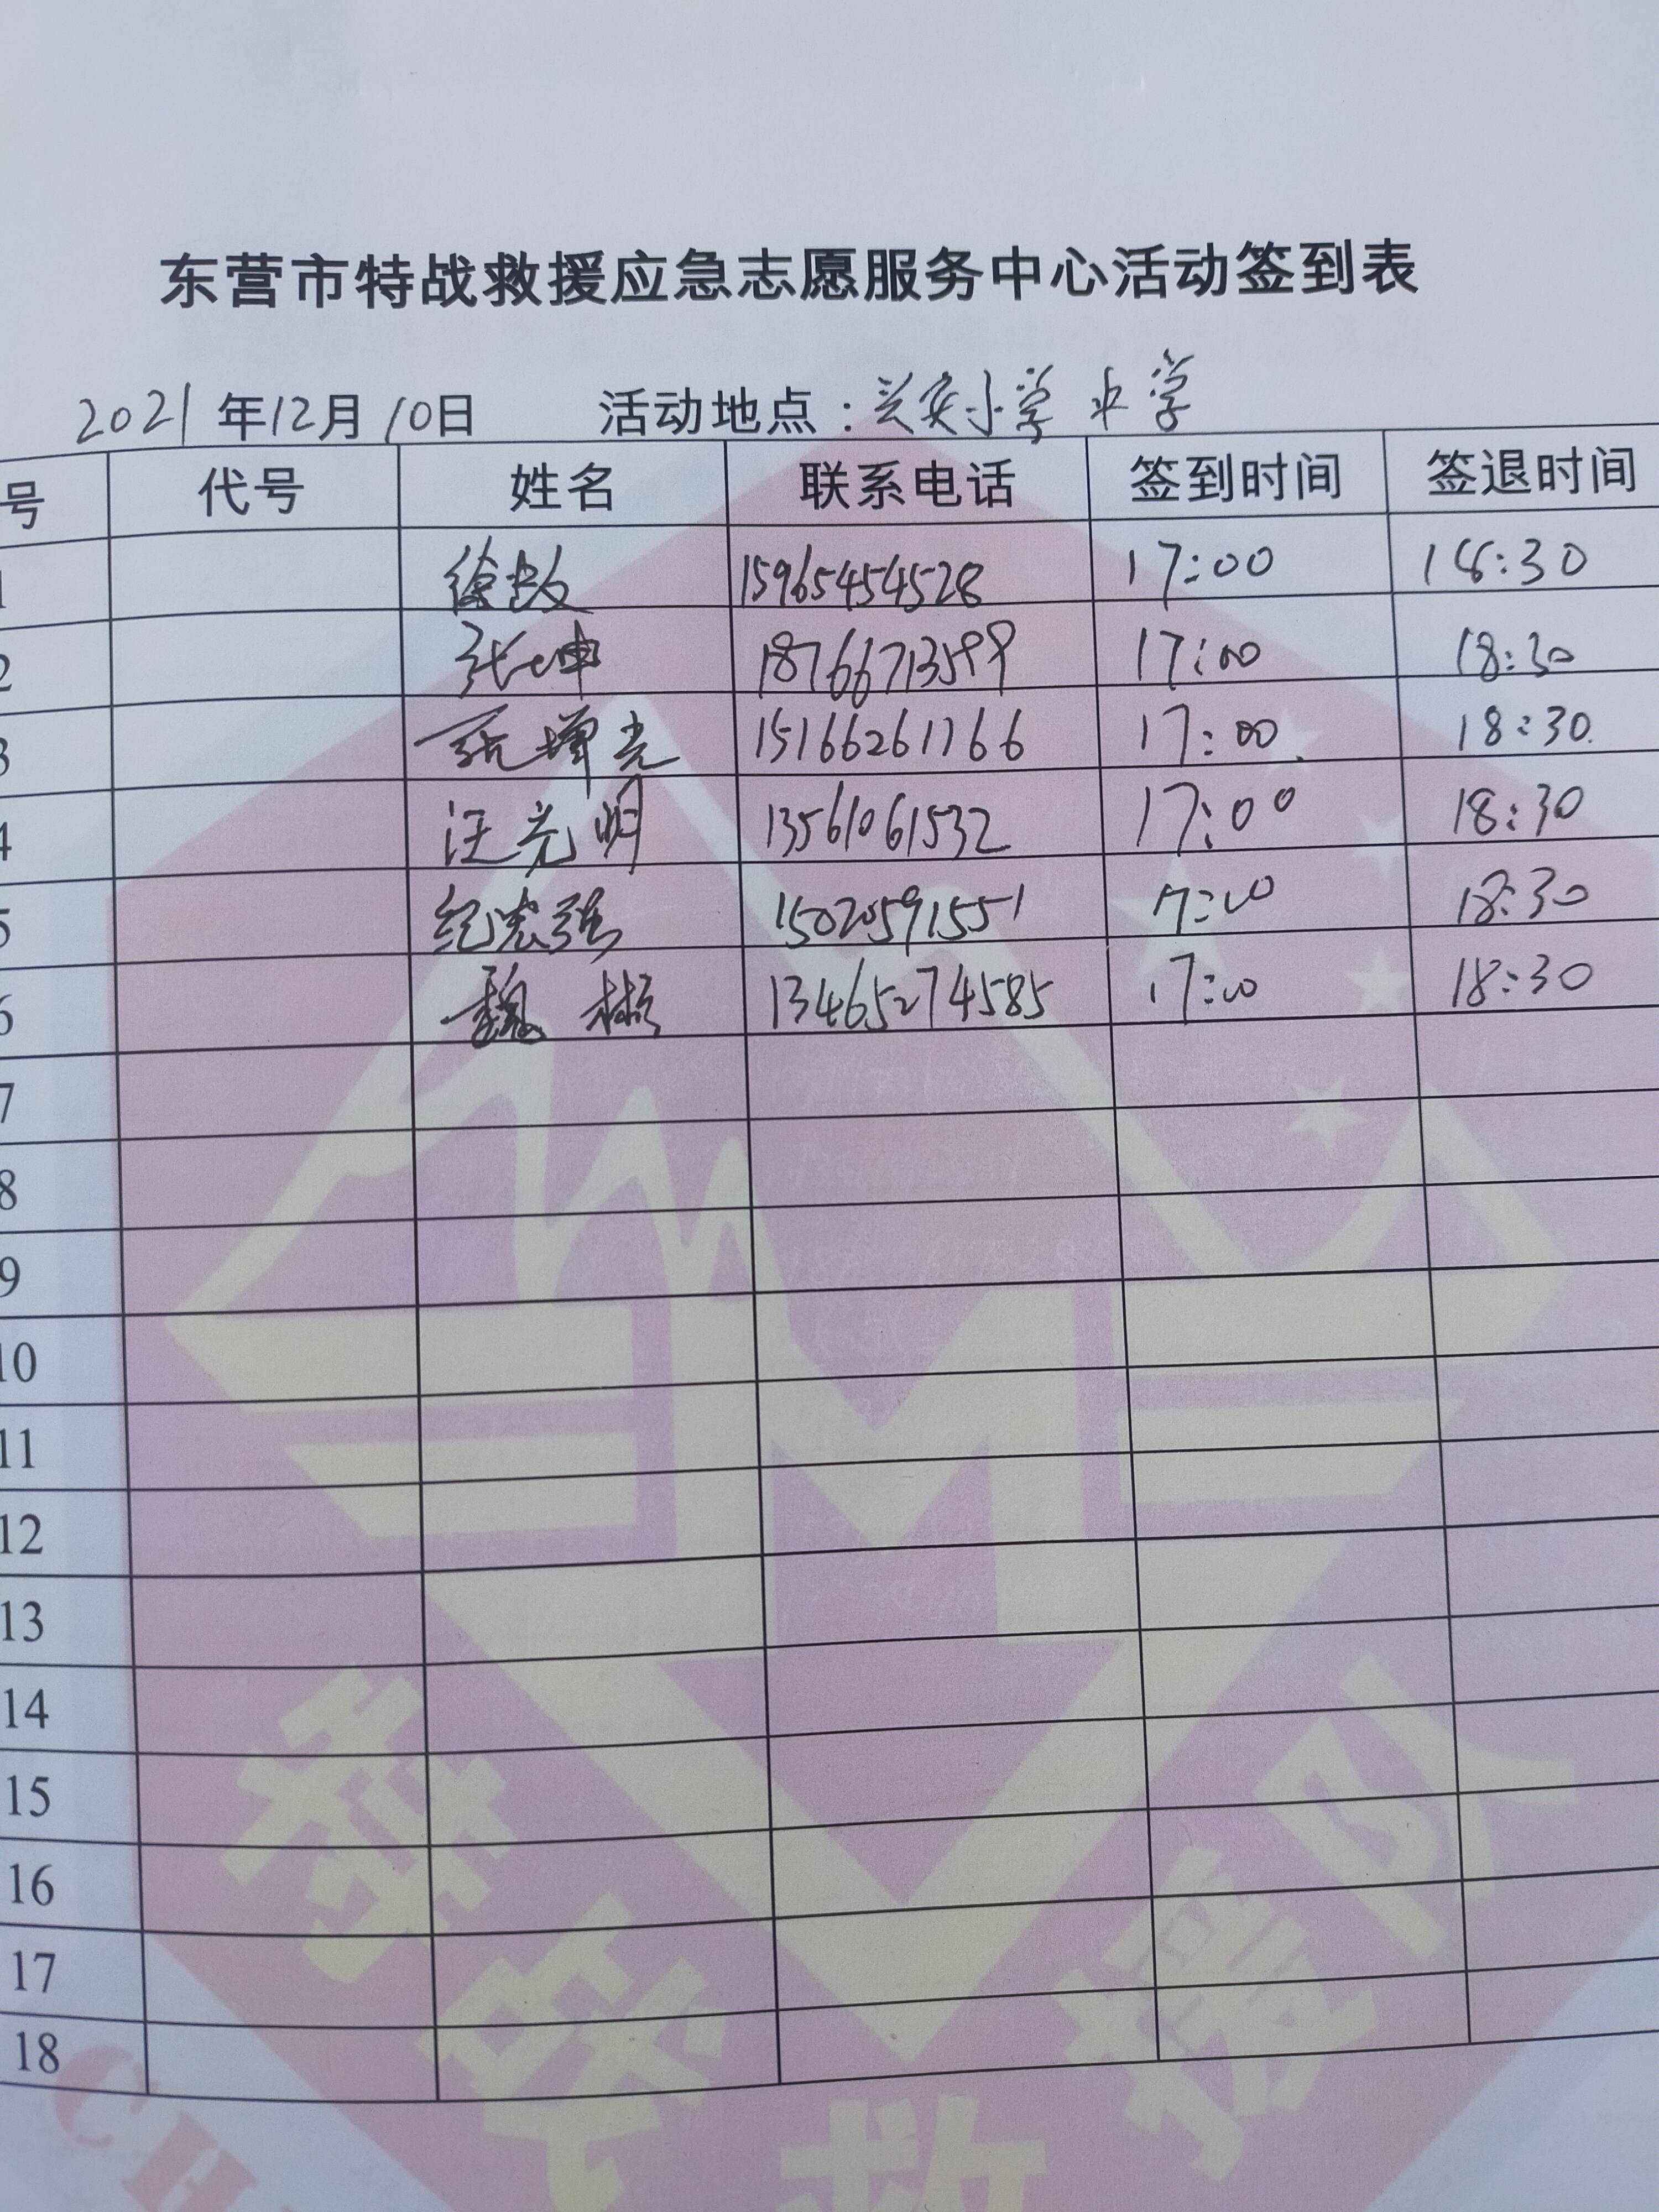 东营市特战救援应急志愿服务中心活动签到表
2021年12月10日 活动地点:兴安小学 中学
号 代号 姓名 联系电话 签到时间 签退时间
1 徐 15965454528 17:00 18:30
2 张坤 18766713599 17:00 18:30
3 增光 15166261166 17:00 18:30
4 汪光明 13561061532 17:00 18:30
5 纪宪强 15020591551 17:00 18:30
6 魏彬 13465274585 17:00 18:30
7
8
9
10
11
12
13
14
15
16
17
18
特战救援队
CH